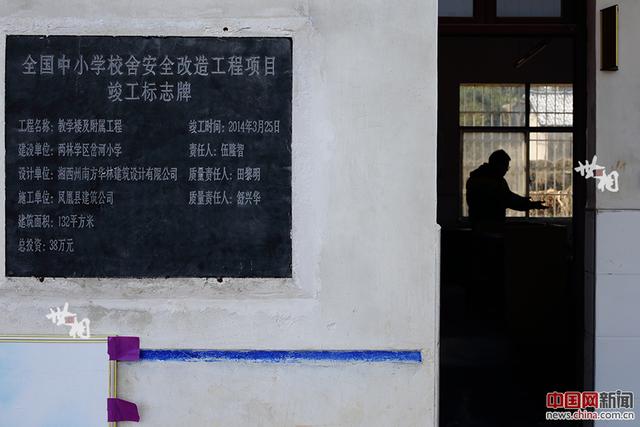 全国中小学校舍安全改造工程项目
竣工标志牌
工程名称：教学楼及附属工程
竣工时间：2014年3月25日
建设单位：两林学区岔河小学
责任人：伍隆智
设计单位：湘西州南方华林建筑设计有限公司
质量责任人：田黎明
施工单位：凤凰县建筑公司
质量责任人：舒兴华
建筑面积：132平方米
总投资：38万元
世相
世相
中国网新闻
news.china.com.cn